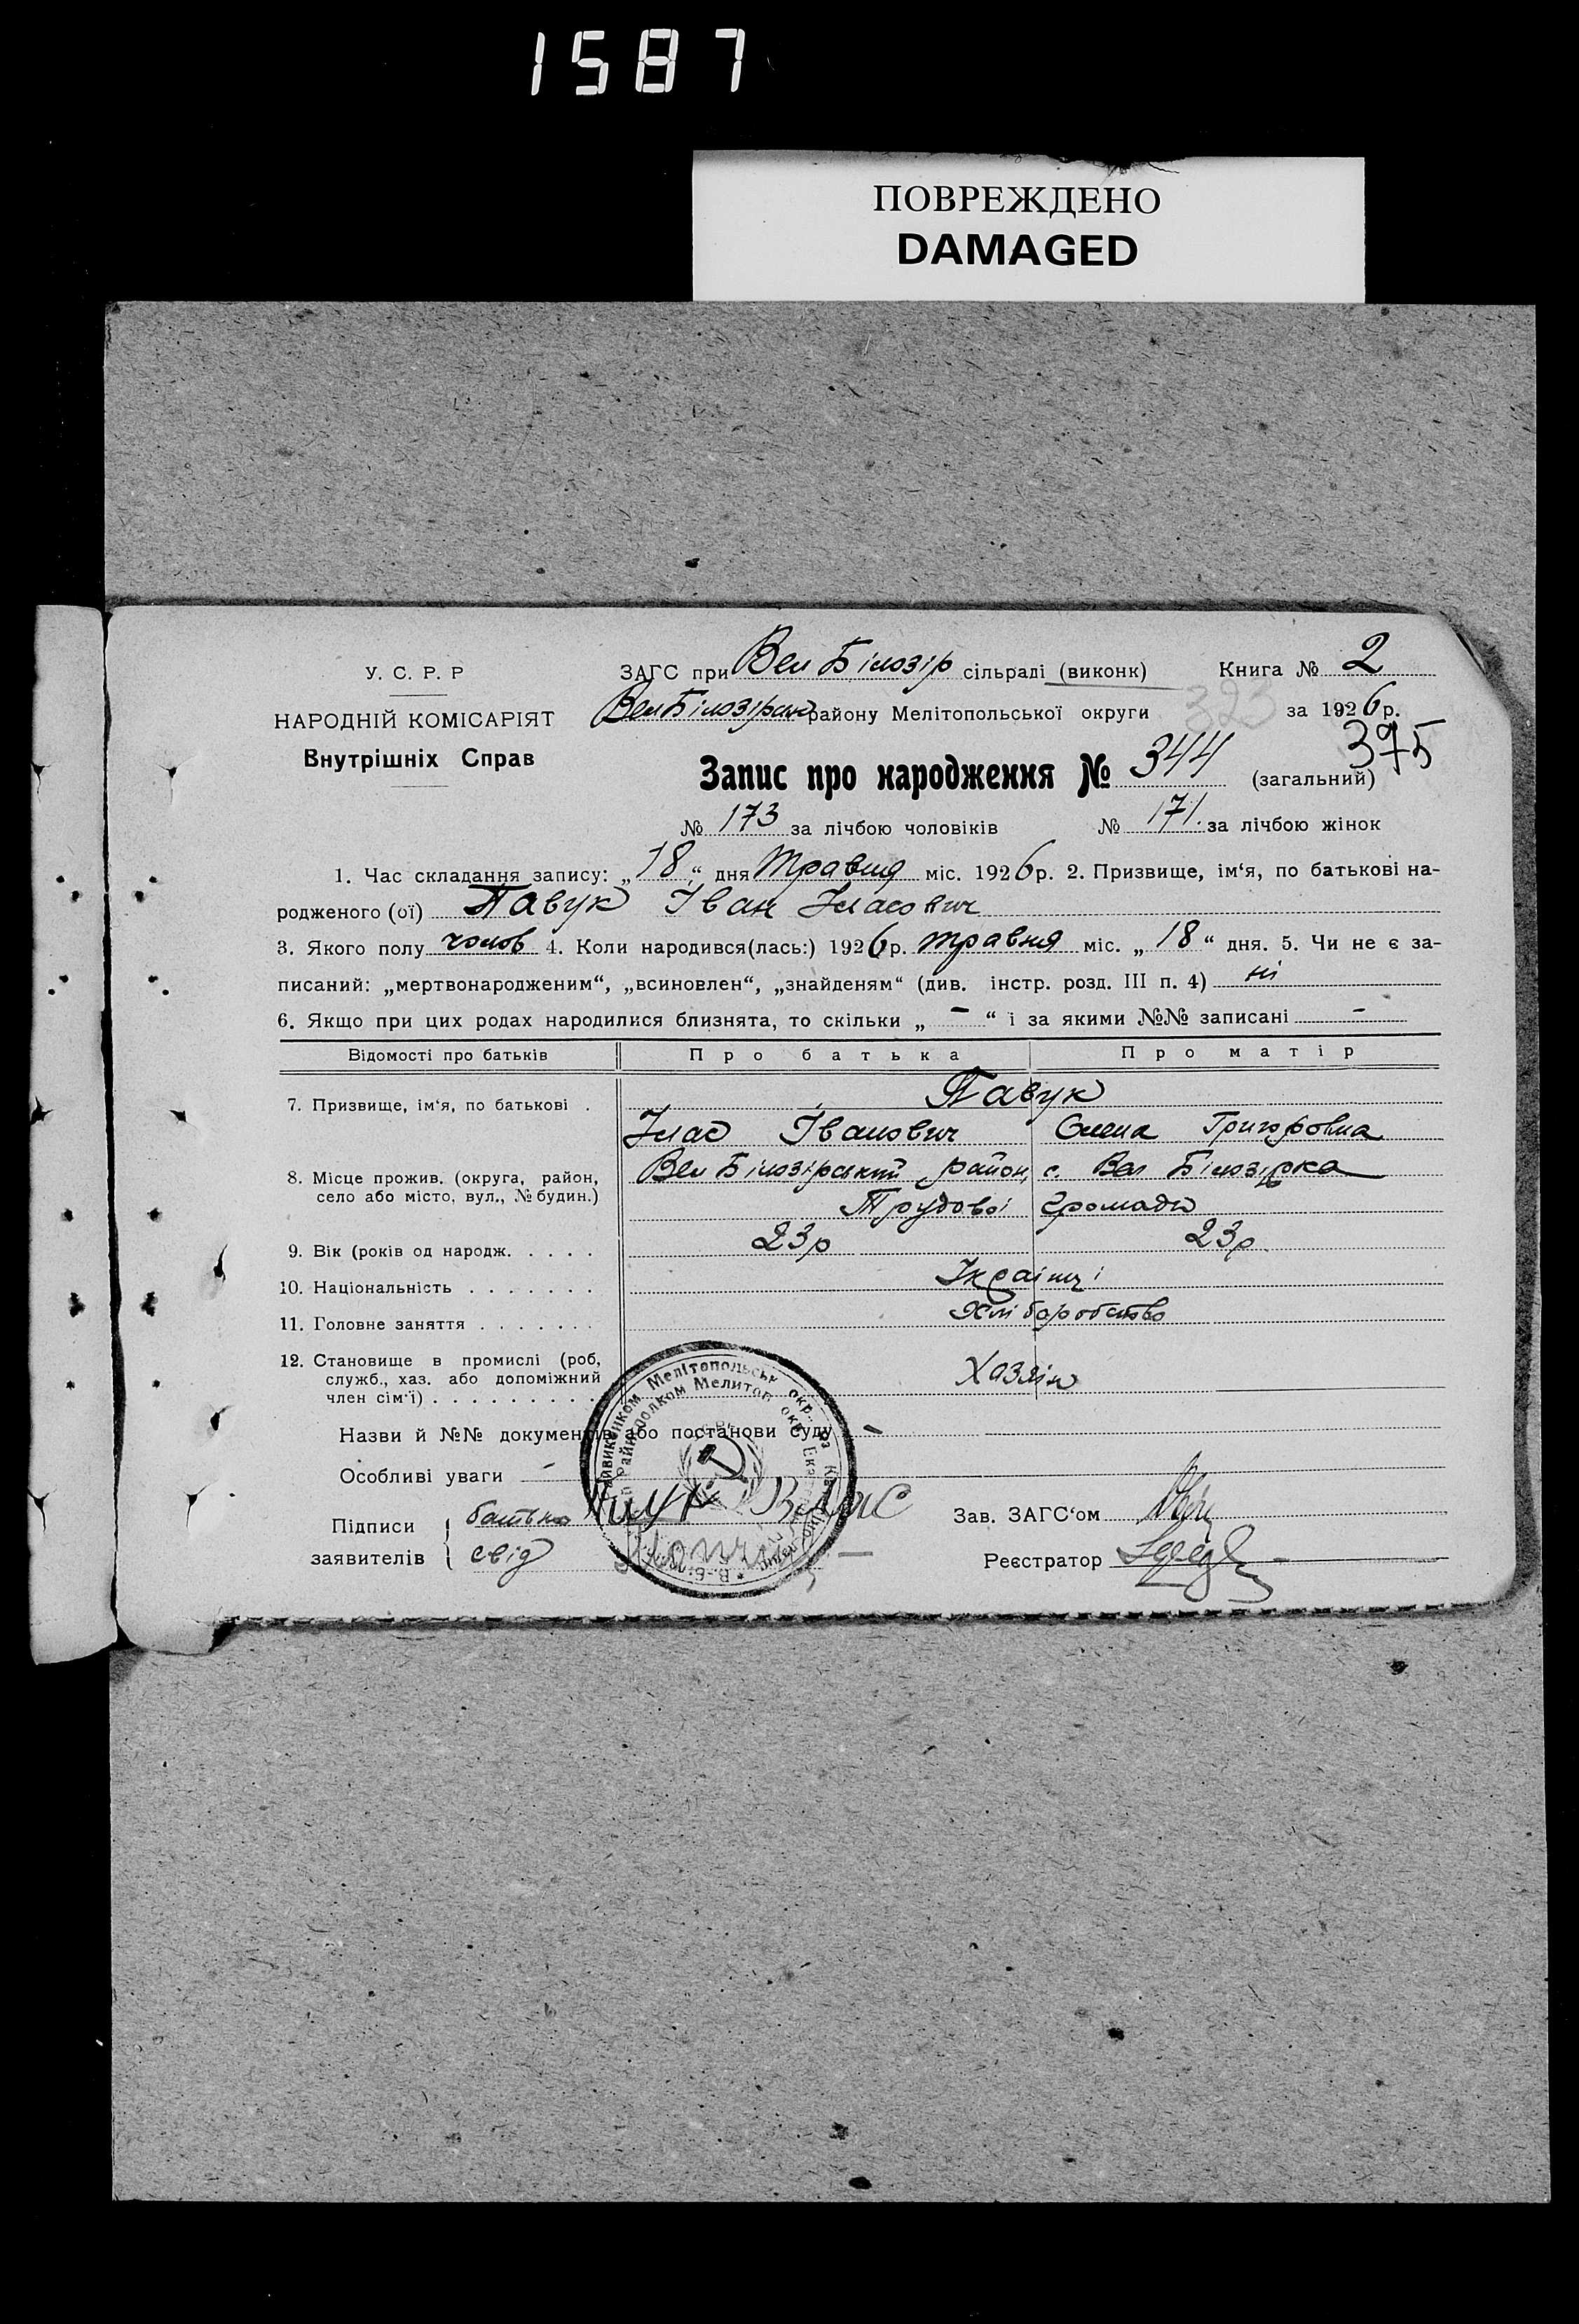 1587
ПОВРЕЖДЕНО
DAMAGED
У. С. Р. Р
НАРОДНІЙ КОМІСАРІЯТ
Внутрішніх Справ
ЗАГС при Вел Білозір сільраді (виконк) Книга № 2
ВелБілозіран району Мелітопольської округи 323 за 1926 р.
375
Запис про народження № 344 (загальний)
№ 173 за лічбою чоловіків № 171. за лічбою жінок
1. Час складання запису: „18“ дня травня міс. 1926 р. 2. Призвище, ім‘я, по батькові на-
родженого (ої) Павук Іван Уласович
3. Якого полу чолов 4. Коли народився(лась:) 1926 р. травня міс. „18“ дня. 5. Чи не є за-
писаний: „мертвонародженим“, „всиновлен“, „знайденям“ (див. інстр. розд. III п. 4) ні
6. Якщо при цих родах народилися близнята, то скільки „ - “ і за якими №№ записані -
Відомості про батьків Про батька Про матір
7. Призвище, ім‘я, по батькові . Павук
Улас Іванович Олена Григоровна
8. Місце прожив. (округа, район, село або місто, вул., № будин.) Вел Білозірський район, с. Вел Білозірка
Трудової громади
9. Вік (років од народж. . . . . 23р 23р
10. Національність . . . . . . . Українці
11. Головне заняття . . . . . . . Хліборобство
12. Становище в промислі (роб, служб., хаз. або допоміжний член сім‘ї) . . . . . . . . . Хазяїн
Назви й №№ документів або постанови суду -
Особливі уваги -
Підписи заявителів { батько Влас
свід
Зав. ЗАГС‘ом
Реєстратор